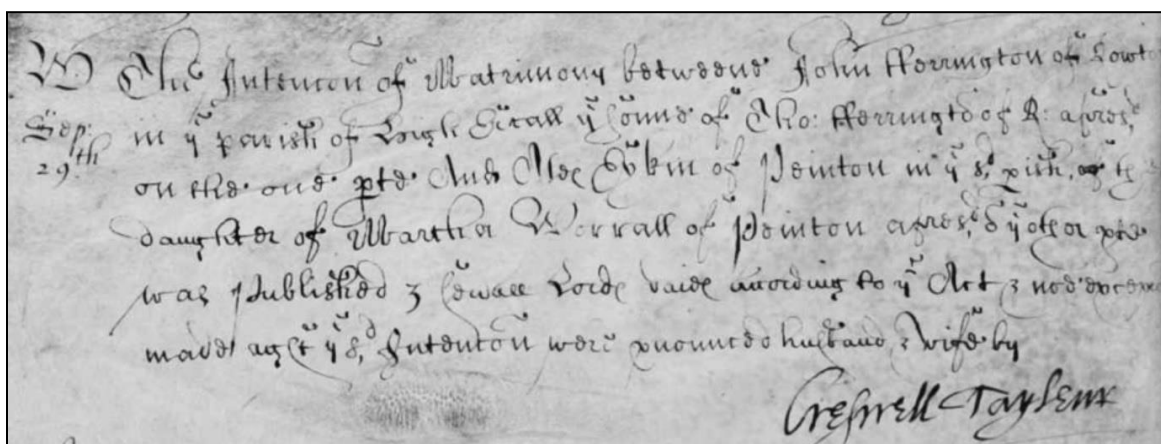 W The Intencon of Matrimony betweene John Fferrington of Lowto
Sep: in yͤ parish of Leigh yͤ sonne of Tho: Fferringto of afores:ᵈ
29:th on the one pte And Alec of Peinton in yͤ s:ᵈ pish,
daughter of Martha Worrall of Peinton afores:ᵈ yͤ other pte
was Published 3 sevall Lords according to yͤ Act & noe excep
made agst yͤ s:ᵈ Intencon were pnounced husband & wife by
Creswell Tayleur